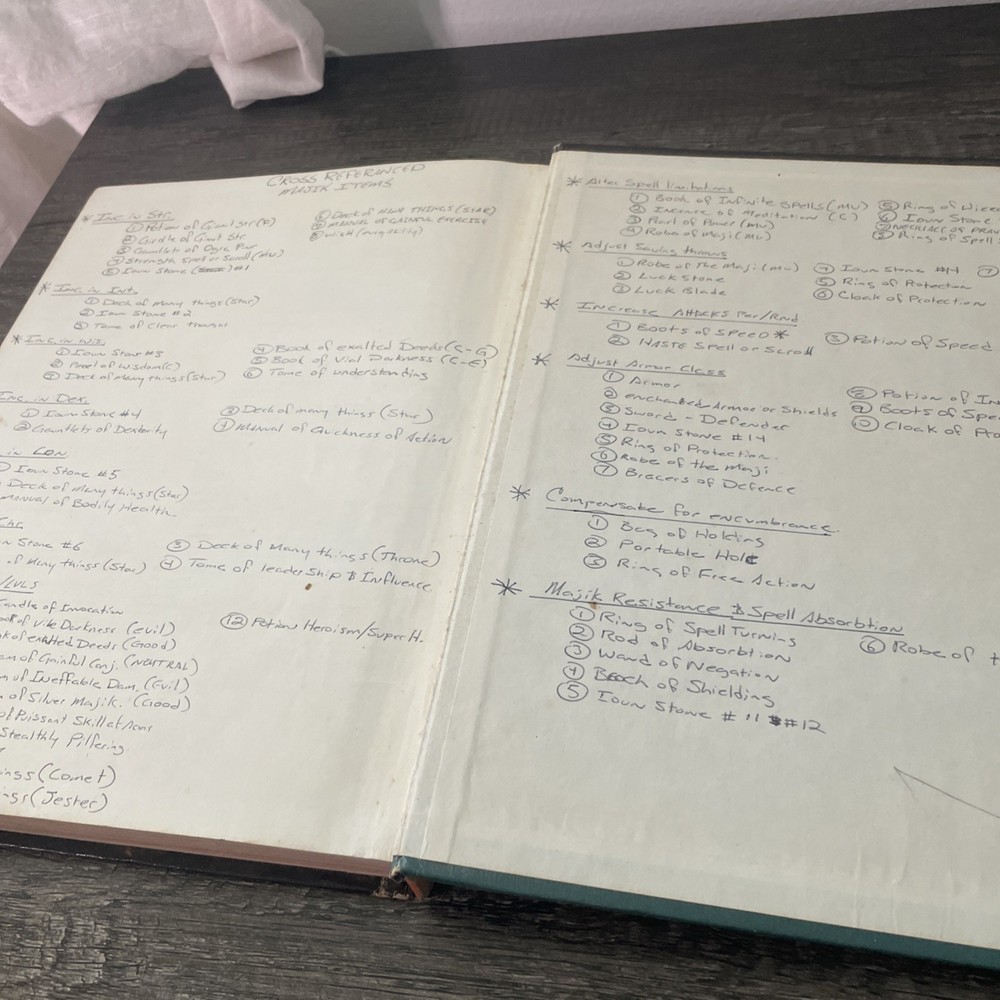 CROSS REFERANCED
MAJIK ITEMS
* Inc in Str.
① Potion of Giant Str (R)
② Girdle of Giant Str
③ Gauntlets of Ogre Pwr
④ Strength Spell or Scroll (mu)
⑤ Ioun Stone #1
⑥ Deck of MANY THINGS (STAR)
⑦ MANUAL OF GAINFUL EXERCISE
⑧ Wish
* Inc. in Int.
① Deck of Many things (Star)
② Ioun Stone #2
③ Tome of Clear
* Inc. in Wis.
① Ioun Stone #3
② Pearl of Wisdom (C)
③ Deck of Many things (Star)
④ Book of exalted Deeds (C-G)
⑤ Book of Vial Darkness (C-E)
⑥ Tome of understanding
Inc. in Dex.
① Ioun Stone #4
② Gauntlets of Dexterity
③ Deck of many things (Star)
④ Manual of Quickness of Action
in CON
Ioun Stone #5
Deck of Many things (Star)
Manual of Bodily Health.
Chr.
Stone #6
of Many things (Star)
③ Deck of Many things (Throne)
④ Tome of leader Ship & Influence
/LVLS
Candle of Invocation
of Vile Darkness (evil)
of exalted Deeds (Good)
of Gainful Conj. (NEUTRAL)
of Ineffable Dam. (Evil)
of Silver Majik. (Good)
of Puissant Skill at Arms
Stealthly Pilfering
(Comet)
(Jester)
⑫ Potion Heroism/Super H.
* Alter Spell limitations
① Book of Infinite Spells (MU)
② Incense of Meditation (C)
③ Pearl of Power (MU)
④ Robe of Maji (Mu)
⑤ Ring of
⑥ Ioun Stone
⑦ NECKLACE OF
⑧ Ring of Spell
* Adjust Saving throws
① Robe of The Maji (mu)
② Luck Stone
③ Luck Blade
④ Ioun Stone #14
⑤ Ring of Protection
⑥ Cloak of Protection
⑦
* Increase Attacks Per/Rnd
① Boots of Speed *
② HASTE Spell or Scroll
③ Potion of Speed
* Adjust Armor Class
① Armor
② enchanted Armor or Shields
③ Sword - Defender
④ Ioun Stone #14
⑤ Ring of Protection.
⑥ Robe of the Maji
⑦ Bracers of Defence
⑧ Potion of
⑨ Boots of
⑩ Cloak of
* Compensate for encumbrance
① Bag of Holding
② Portable Hole
③ Ring of Free Action
* Majik Resistance & Spell Absorbtion
① Ring of Spell Turning
② Rod of Absorbtion
③ Wand of Negation
④ Broch of Shielding
⑤ Ioun Stone # 11 & #12
⑥ Robe of